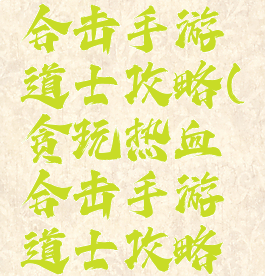 合击手游
道士攻略(
贪玩热血
合击手游
道士攻略